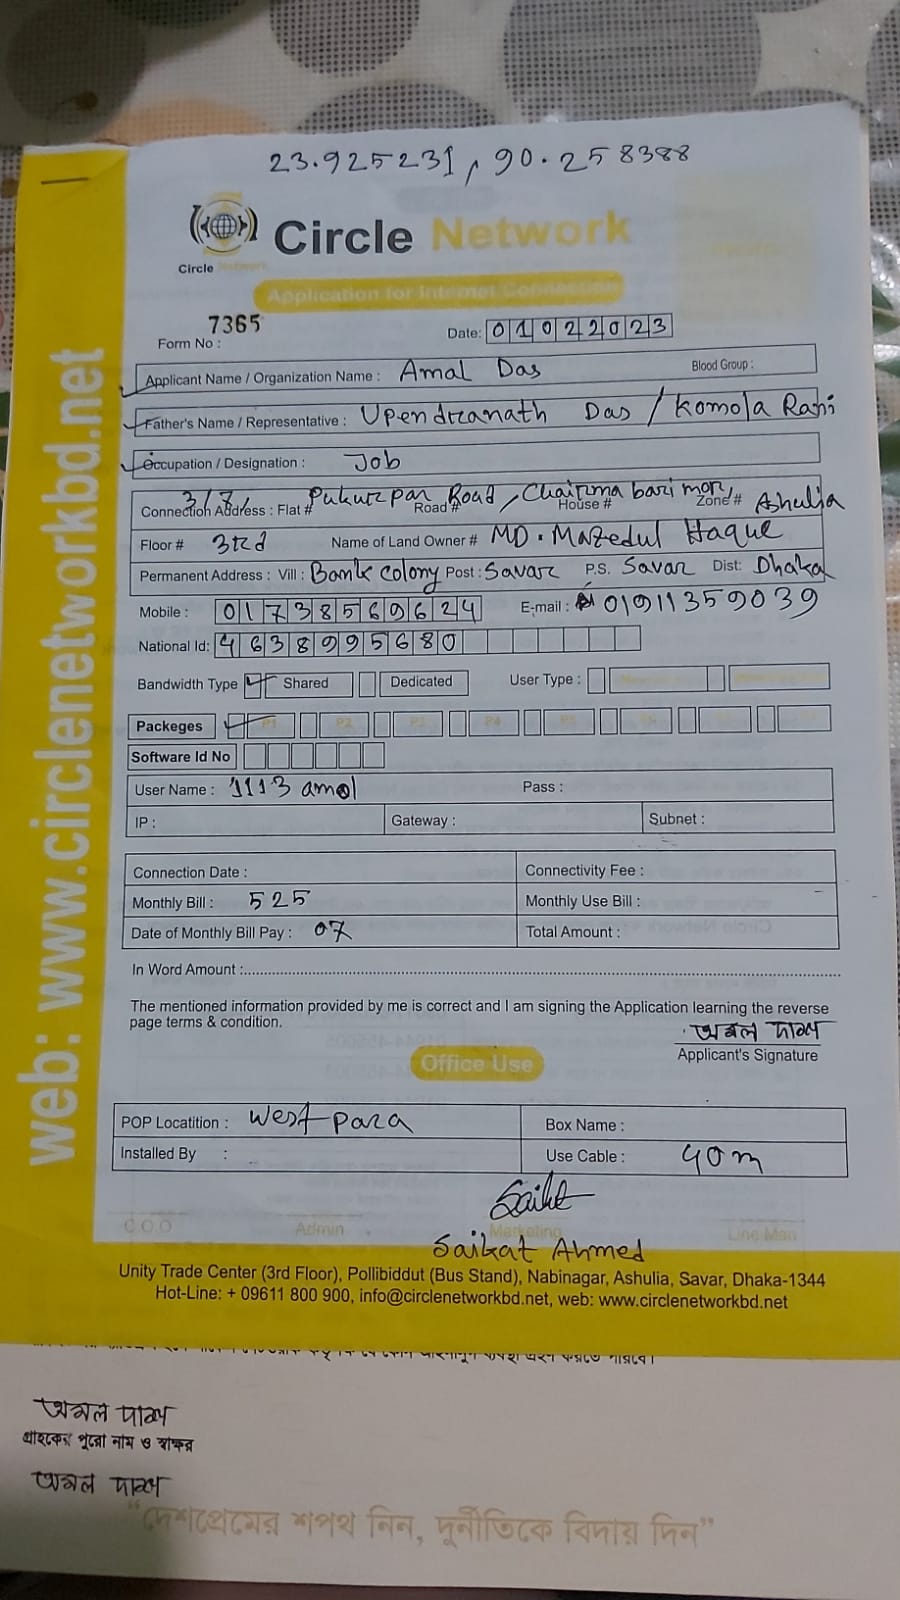 23.925231, 90.258388
Circle Network
Circle Network
Application for Internet Connection
7365
Form No :
Date: 01022023
Applicant Name / Organization Name : Amal Das Blood Group :
Father's Name / Representative : Upendranath Das / Komola Rani
Occupation / Designation : Job
Connection Address : Flat # 3/7, Pukurpar Road # Road, House # Chairma bari mor, Zone # Ashulia
Floor # 3rd Name of Land Owner # MD. Mazedul Haque
Permanent Address : Vill : Bank Colony Post : Savar P.S. Savar Dist: Dhaka
Mobile : 01738569624 E-mail : 01911359039
National Id: 4638995680
Bandwidth Type Shared Dedicated User Type :
Packeges P1 P2 P3 P4
Software Id No
User Name : 1113 amol Pass :
IP : Gateway : Subnet :
Connection Date : Connectivity Fee :
Monthly Bill : 525 Monthly Use Bill :
Date of Monthly Bill Pay : 07 Total Amount :
In Word Amount :
The mentioned information provided by me is correct and I am signing the Application learning the reverse
page terms & condition.
অমল দাস
Applicant's Signature
Office Use
POP Locatition : West para Box Name :
Installed By : Use Cable : 40m
Saikat
C.O.O Admin Marketing Line Man
Saikat Ahmed
Unity Trade Center (3rd Floor), Pollibiddut (Bus Stand), Nabinagar, Ashulia, Savar, Dhaka-1344
Hot-Line: + 09611 800 900, info@circlenetworkbd.net, web: www.circlenetworkbd.net
web: www.circlenetworkbd.net
অমল দাস
গ্রাহকের পুরো নাম ও স্বাক্ষর
অমল দাস
“দেশপ্রেমের শপথ নিন, দুর্নীতিকে বিদায় দিন”